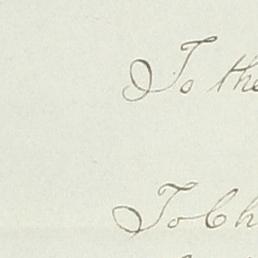 To the
To Ch